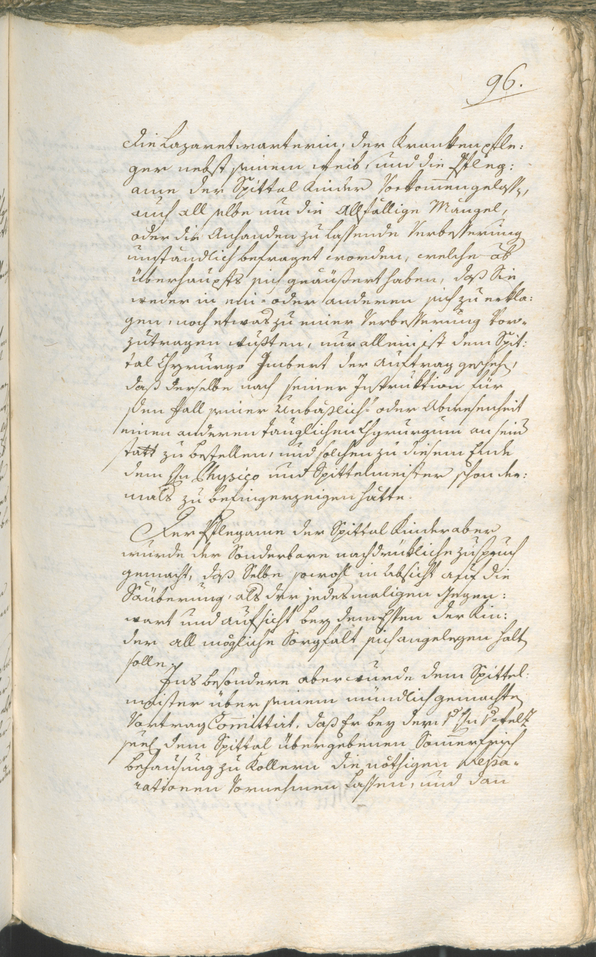 96.
die Lazaretwarterin, der Krankenpfle:
ger nebst seinem Weib, und die Pfleg:
ame der Spittal Kinder Vorkommen gelasse,
auch all selbe um die Allfällige Mängel,
oder die Anhanden zu lassende Verbesserung
umständlich befraget worden, welche ab
überhaupts sich geäußert haben, daß Sie
weder in ein- oder anderen sich zu erkla:
gen, noch etwas zu einer Verbesserung Vor-
zutragen wußten, nur allein ist dem Spit:
tal Chyrurgo Imbert der Auftrag geschehe,
daß derselbe nach seiner Instruktion für
den Fall seiner Unbäßlich- oder Abwesenheit
einen anderen tauglichen Chyrurgum an sein
statt zu bestellen, und solchen zu diesem Ende
dem Hn Physico und Spittelmeister schon der:
mals zu befingerzeigen hätte.
Der Pflegame der Spittal Kinder aber
wurde der Sonderbare nachdrükliche Zuspruch
gemacht, daß Selbe sowohl in Absicht auf die
Säuberung, als der jedesmaligen Gegen:
wart und Aufsicht bey dem Essen der Kin:
der all mögliche Sorgfalt sich angelegen halt
solle.
Ins besondere aber wurde dem Spittel:
meister über seinem mündlich gemachte
Vortrag Comittirt, daß Er bey der
dem Spittal übergebenen Somerfrisch
behausung zu Kollern die nöthigen Repa-
rationen Vornehmen lassen, und dan